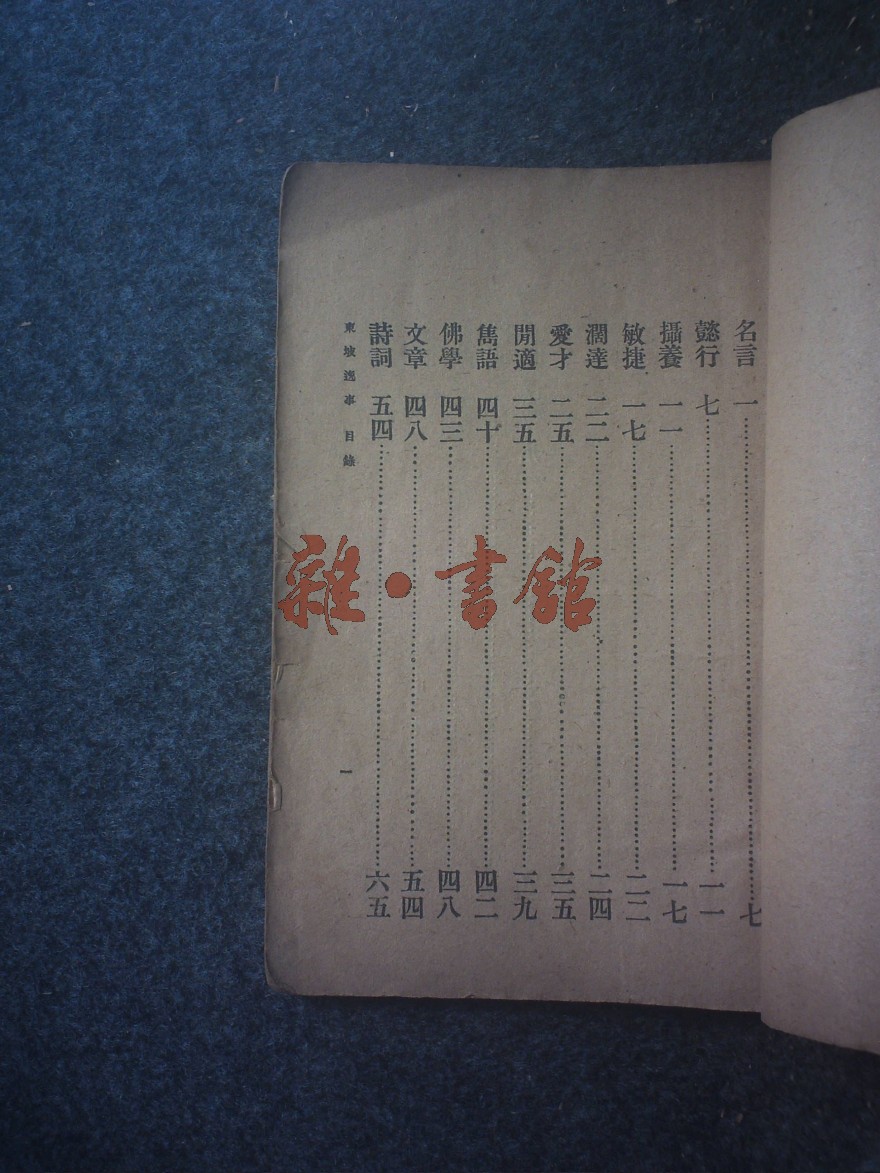 名言 一……七
懿行 七……一一
攝養 一一……一七
敏捷 一七……二二
濶達 二二……二四
愛才 二五……三五
閒適 三五……三九
雋語 四十……四二
佛學 四三……四八
文章 四八……五四
詩詞 五四……六五
東坡逸事 目錄 一
雜·書館